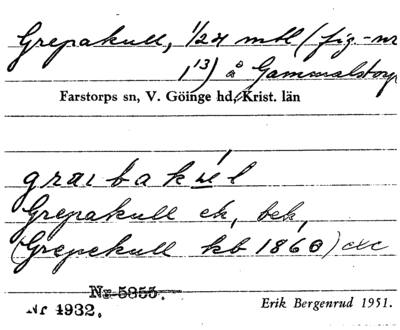 Grepakull, 1/24 mtl (fig.-nr
1 13) å Gammalstorp
Farstorps sn, V. Göinge hd, Krist. län
Grepakull ek, bek,
(Grepekull kb 1860)
Nr 5855.
Nr 4932. Erik Bergenrud 1951.